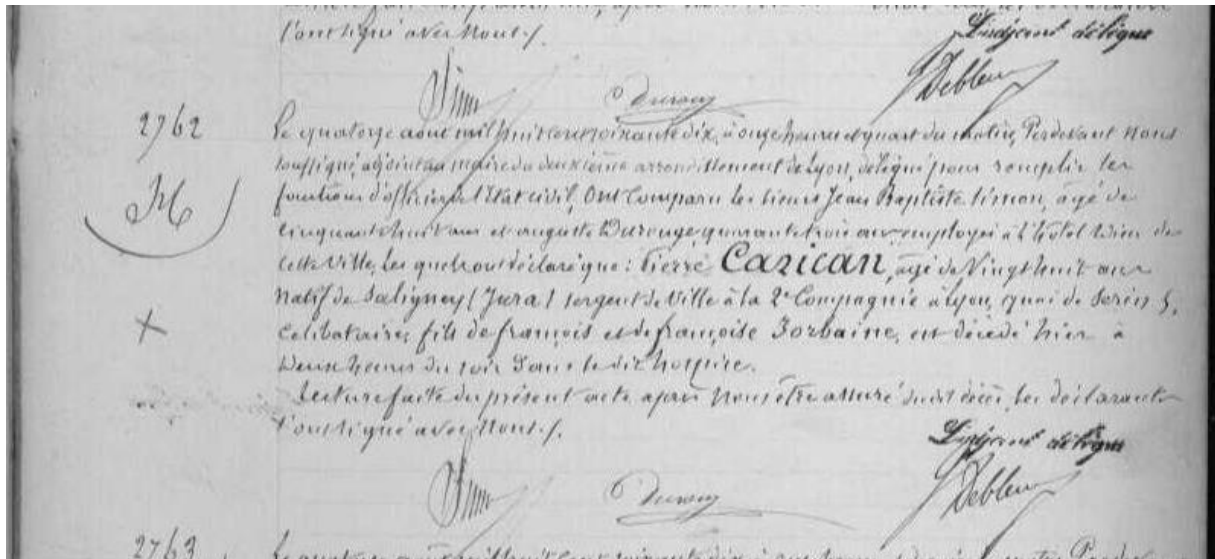 l'ont signé avec Nous./.
L'adjoint délégué
2762
Le quatorze août mil huit cent soixante dix, à onze heures et quart du matin, Pardevant Nous
soussigné, adjoint au maire du deuxième arrondissement de Lyon, délégué pour remplir les
fonctions d'officier de l'Etat civil, Ont Comparu les sieurs Jean Baptiste Simon, âgé de
cinquante huit ans et auguste Durouge, quarante trois ans employés à l'hôtel Dieu de
cette Ville, Les quels ont déclaré que : Pierre Carican, âgé de Vingt huit ans
Natif de Saligney (Jura) sergent de Ville à la 2e Compagnie à Lyon, quai de Serin 5,
Celibataire, fils de françois et de françoise Jorbaine, est décédé hier à
Deux heures du soir Dans le dit hospice.
Lecture faite du présent acte, après Nous être assuré du décès, les déclarants
l'ont signé avec Nous./.
L'adjoint délégué
2763